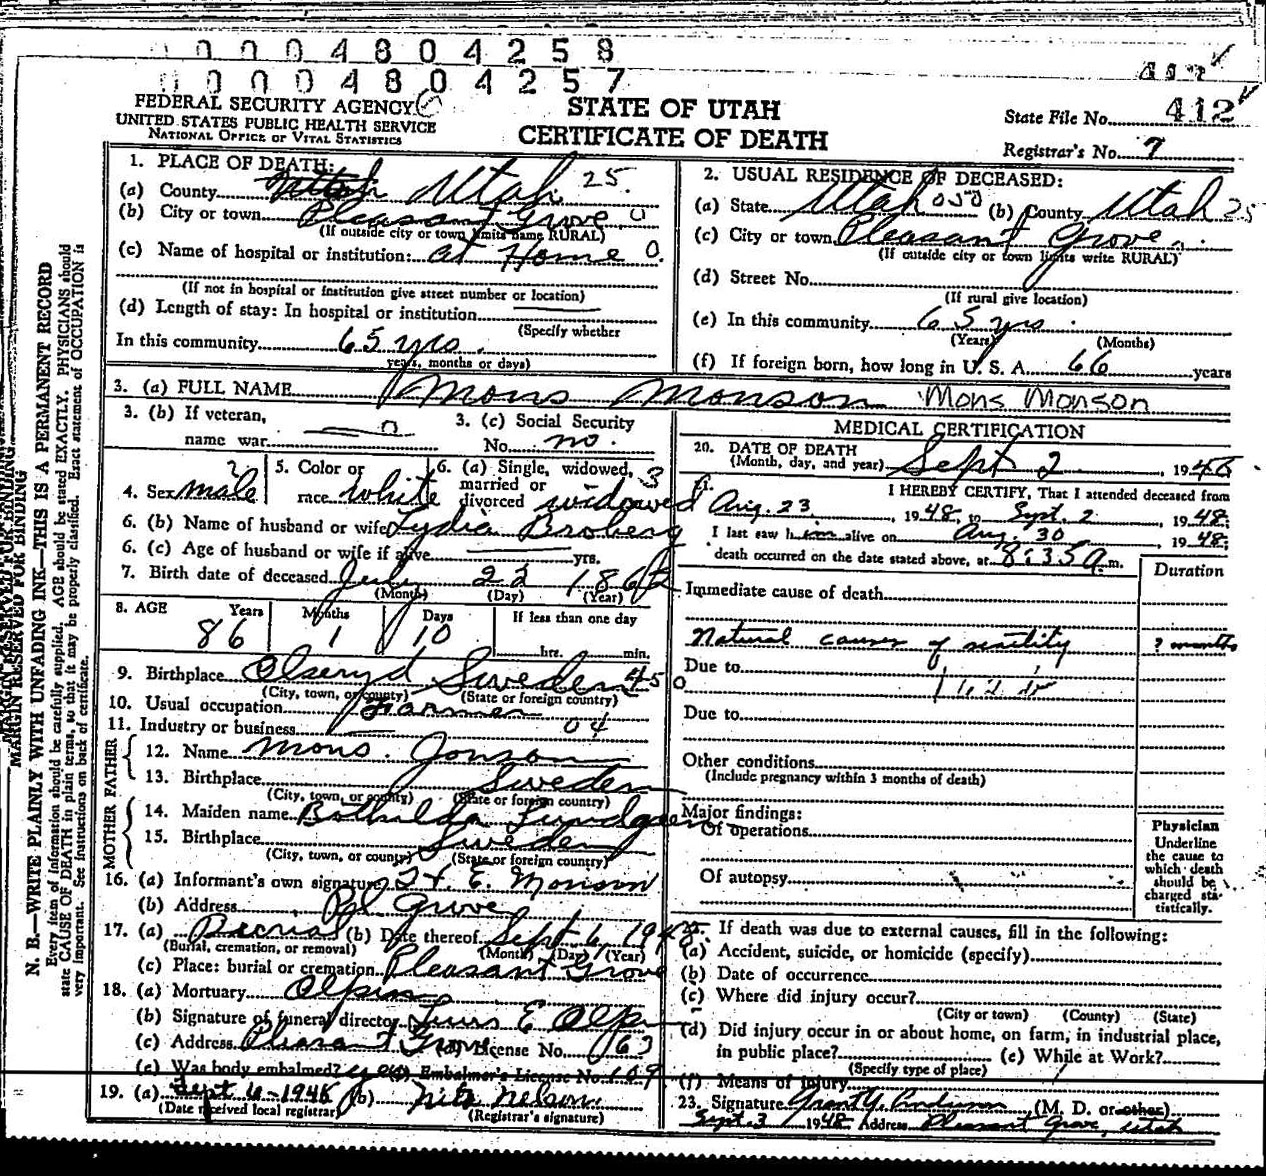 0 0 0 4 8 0 4 2 5 8
0 0 0 4 8 0 4 2 5 7
412
FEDERAL SECURITY AGENCY
UNITED STATES PUBLIC HEALTH SERVICE
NATIONAL OFFICE OF VITAL STATISTICS
STATE OF UTAH
CERTIFICATE OF DEATH
State File No. 412
Registrar's No. 7
MARGIN RESERVED FOR BINDING
N. B.—WRITE PLAINLY WITH UNFADING INK—THIS IS A PERMANENT RECORD
Every item of information should be carefully supplied. AGE should be stated EXACTLY. PHYSICIANS should
state CAUSE OF DEATH in plain terms, so that it may be properly classified. Exact statement of OCCUPATION is
very important. See instructions on back of certificate.
1. PLACE OF DEATH:
(a) County Utah 25.
(b) City or town Pleasant Grove 0
(If outside city or town limits name RURAL)
(c) Name of hospital or institution: at Home 0.
(If not in hospital or institution give street number or location)
(d) Length of stay: In hospital or institution
(Specify whether
In this community 65 yrs.
years, months or days)
2. USUAL RESIDENCE OF DECEASED:
(a) State Utah 050 (b) County Utah 25
(c) City or town Pleasant Grove
(If outside city or town limits write RURAL)
(d) Street No.
(If rural give location)
(e) In this community 65 yrs.
(Years) (Months)
(f) If foreign born, how long in U. S. A. 66 years
3. (a) FULL NAME Mons Monson Mons Monson
3. (b) If veteran, name war 0
3. (c) Social Security No. no.
4. Sex male
5. Color or race white
6. (a) Single, widowed, married or divorced widowed 3
6. (b) Name of husband or wife Lydia Broberg
6. (c) Age of husband or wife if alive yrs.
7. Birth date of deceased July 22 1862
(Month) (Day) (Year)
8. AGE Years 86 Months 1 Days 10 If less than one day
hrs. min.
9. Birthplace Sweden 450
(City, town, or county) (State or foreign country)
10. Usual occupation Farmer
11. Industry or business 04
FATHER
12. Name Mons. Jonson
13. Birthplace Sweden
(City, town, or county) (State or foreign country)
MOTHER
14. Maiden name Bothilda Lundgren
15. Birthplace Sweden
(City, town, or county) (State or foreign country)
16. (a) Informant's own signature E. Monson
(b) Address Pl Grove
17. (a) Burial (b) Date thereof Sept 6, 1948
(Burial, cremation, or removal) (Month) (Day) (Year)
(c) Place: burial or cremation Pleasant Grove
18. (a) Mortuary Olpins
(b) Signature of funeral director E Olpin
(c) Address Pleasant Grove (d) License No. 163
(e) Was body embalmed? yes (f) Embalmer's License No. 109
19. (a) Sept 6-1948 (b) Nelson
(Date received local registrar) (Registrar's signature)
MEDICAL CERTIFICATION
20. DATE OF DEATH
(Month, day, and year) Sept 2, 1948.
I HEREBY CERTIFY, That I attended deceased from
Aug. 23, 1948, to Sept. 2 1948;
I last saw him alive on Aug. 30, 1948;
death occurred on the date stated above, at 8:35 a. m.
Duration
Immediate cause of death
Natural causes of senility ? months
Due to
Due to
Other conditions
(Include pregnancy within 3 months of death)
Major findings:
Of operations
Of autopsy
Physician
Underline
the cause to
which death
should be
charged sta-
tistically.
If death was due to external causes, fill in the following:
(a) Accident, suicide, or homicide (specify)
(b) Date of occurrence
(c) Where did injury occur?
(City or town) (County) (State)
(d) Did injury occur in or about home, on farm, in industrial place,
in public place? (e) While at Work?
(Specify type of place)
(f) Means of injury
23. Signature Grant Y. Anderson (M. D. or other)
Sept. 3 1948 Address Pleasant Grove, Utah